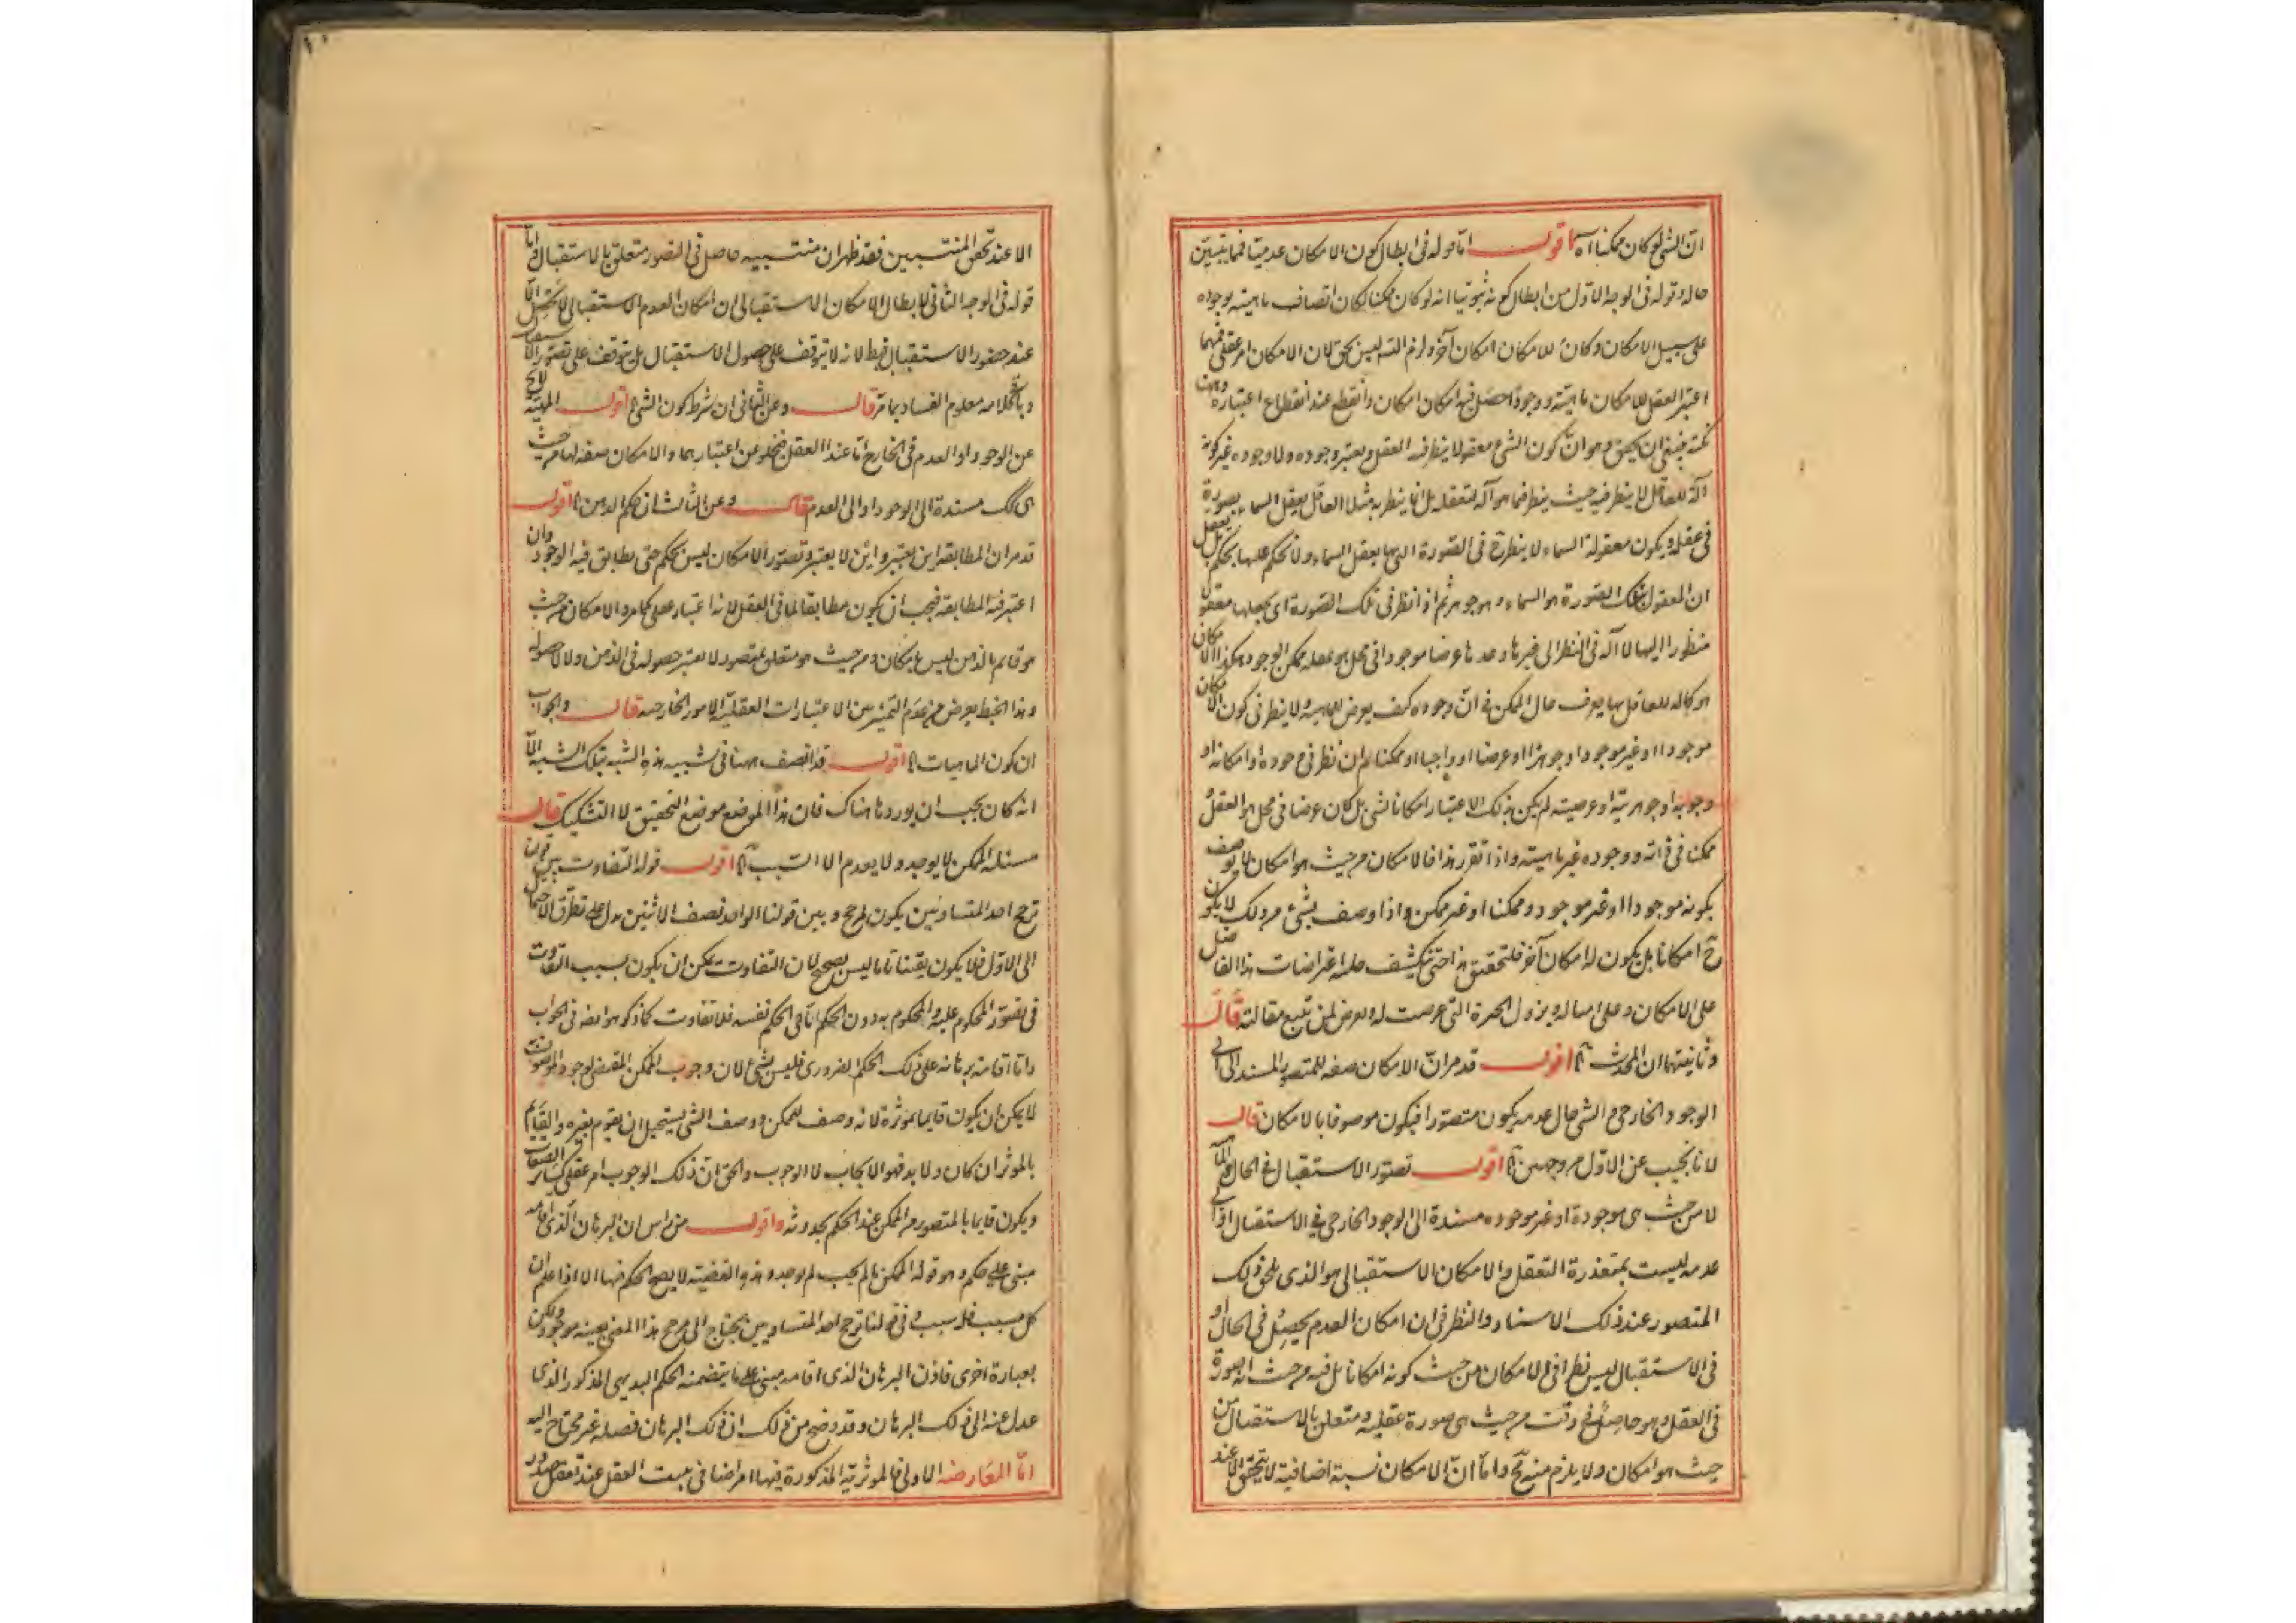 ان الشی لو کان ممکنا آه اقول اما قوله فی ابطال کون الامکان عدمیا فما یتبین
حاله وقوله فی الوجه الاول من ابطال کونه ثبوتیا انه لو کان ممکنا لکان اتصاف ماهیته بوجوده
علی سبیل الامکان وکان للامکان امکان آخر ولزم التسلسل لیس بحق لان الامکان امر عقلی فمهما
اعتبر العقل للامکان ماهیته ووجودا حصل فیه امکان امکان وانقطع عند انقطاع اعتباره وههنا
نکته ینبغی ان یحقق وهو ان کون الشی معقولا ینظر فیه العقل ویعتبر وجوده ولا وجوده غیر کونه
آلة للعاقل لا ینظر فیه حیث ینظر فیما هو آلة لتعقله بل انما ینظر به مثلا العاقل یعقل السماء بصورة
فی عقله ویکون معقوله السماء لا ینظر ح فی الصورة التی بها یعقل السماء ولا یحکم علیها بحکم بل یعقل
ان المعقول بتلک الصورة هو السماء وهو جوهر ثم اذا نظر فی تلک الصورة ای یجعلها معقولا
منظورا الیها لا آلة فی النظر الی غیرها وجدها عرضا موجودا فی محل هو عقله ممکن الوجود هکذا الامکان
هو کآلة للعاقل بها یعرف حال الممکن فی ان وجوده کیف یعرض لماهیته ولا ینظر فی کون الامکان
موجودا او غیر موجود او جوهرا او عرضا او واجبا او ممکنا ثم ان نظر فی وجوده او امکانه او
وجوبه او جوهریته او عرضیته لم یکن بذلک الاعتبار امکانا لشی بل کان عرضا فی محل هو العقل
ممکنا فی ذاته ووجوده غیر ماهیته واذا تقرر هذا فالامکان من حیث هو امکان لا یوصف
بکونه موجودا او غیر موجود وممکنا او غیر ممکن واذا وصف بشئ من ذلک لا یکون
ح امکانا بل یکون له امکان آخر فلتحقیق هذا حتی تنکشف جلیة اعتراضات هذا الفاضل
علی الامکان وعلی امثاله ویزول الحیرة التی عرضت له وتعرض لمن تتبع مقالته قال
وثانیتهما ان المحدث آه اقول قد مر ان الامکان صفه للمتصور المسند الی
الوجود الخارجی والشی حال عدمه یکون متصورا فیکون موصوفا بالامکان قال
لانا نجیب عن الاول من وجهین آه اقول تصور الاستقبال فی الحال
لا من حیث هی موجودة او غیر موجوده مسندة الی الوجود الخارجی فی الاستقبال
عدمه لیست بمتعذرة التعقل والامکان الاستقبالی هو الذی یلحق ذلک
المتصور عند ذلک الاسناد والنظر فی ان امکان العدم یحصل فی الحال او
فی الاستقبال لیس نظرا فی الامکان من حیث کونه امکانا بل فیه من حیث انه صورة
فی العقل وهو حاصل فی وقت من حیث هی صورة عقلیه ومتعلق بالاستقبال من
حیث هو امکان ولا یلزم منه مح واما ان الامکان نسبة اضافیة لا یتحقق الا عند
الا عند تحقق المنتسبین فقد ظهر ان منتسبیه حاصل فی التصور متعلق بالاستقبال واما
قوله فی الوجه الثانی لابطال الامکان الاستقبالی ان امکان العدم الاستقبالی لا یحصل الا
عند حضور الاستقبال فغلط لانه لا یتوقف علی حصول الاستقبال بل یتوقف علی تصور الاستقبال
وباقی کلامه معلوم الفساد بما مر قال وعن الثانی ان شرط کون الشی آه اقول الماهیة لا یخ
عن الوجود او العدم فی الخارج اما عند العقل فیخلو عن اعتبارهما والامکان صفه لها من حیث
هی کک مسندة الی الوجود او الی العدم قال وعن الثالث ان حکم الذهن آه اقول
قد مر ان المطابقه این یعتبر واین لا یعتبر وتصور الامکان لیس بحکم حتی یطابق فیه الوجود وان
اعتبر فیه المطابقه فیجب ان یکون مطابقا لما فی العقل لانه اعتبار عقلی کما مر والامکان من حیث
هو قایم بالذهن لیس بامکان ومن حیث هو متعلق بمتصور لا یعتبر حصوله فی الذهن ولا لا حصوله
وهذا الخبط یعرض من عدم التمییز بین الاعتبارات العقلیة والامور الخارجیه قال والجواب
ان کون الماهیات آه اقول قد انصف ههنا فی تشبیه هذه الشبه بتلک الشبه الا
انه کان یجب ان یوردها هناک فان هذا الموضع موضع التحقیق لا التشکیک قال
مسئله الممکن لا یوجد ولا یعدم الا لسبب آه اقول قوله التفاوت بین قولنا
ترجح احد المتساویین یکون لمرجح وبین قولنا الواحد نصف الاثنین یدل علی تطرق الاحتمال
الی الاول فلا یکون یقینا تاما لیس بصحیح لان التفاوت یمکن ان یکون بسبب التفاوت
فی تصور المحکوم علیه والمحکوم به دون الحکم اما فی الحکم نفسه فلا تفاوت کما ذکر هو ایضه فی الجواب
واما اقامته برهانه علی ذلک الحکم الضروری فلیس بشئ لان وجوب الممکن المقتضی لوجود الموصوف
لا یمکن ان یکون قایما بموثره لانه وصف للممکن ووصف الشی یستحیل ان یقوم بغیره والقایم
بالموثر ان کان ولا بد فهو الایجاب لا الوجوب والحق ان ذلک الوجوب امر عقلی کسایر الصفات
ویکون قایما بالمتصور من الممکن عند الحکم بحدوثه واقول من راس ان البرهان الذی اقامه
مبنی علی حکم وهو قوله الممکن ما لم یجب لم یوجد وهذه القضیته لا یصح الحکم فیها الا اذا علم ان
کل مسبب فله سبب وفی قولنا ترجح احد المتساویین یحتاج الی مرجح هذا المعنی بعینه موجود ولکن
بعبارة اخری فاذن البرهان الذی اقامه مبنی علی ما یتضمنه الحکم البدیهی المذکور الذی
عدل عنه الی ذلک البرهان وقد وضح من ذلک ان ذلک البرهان فضله غیر محتاج الیه
اما المعارضه الاولی فالموثریة المذکورة فیها امر اضافی یثبت العقل عند تعقل صدور